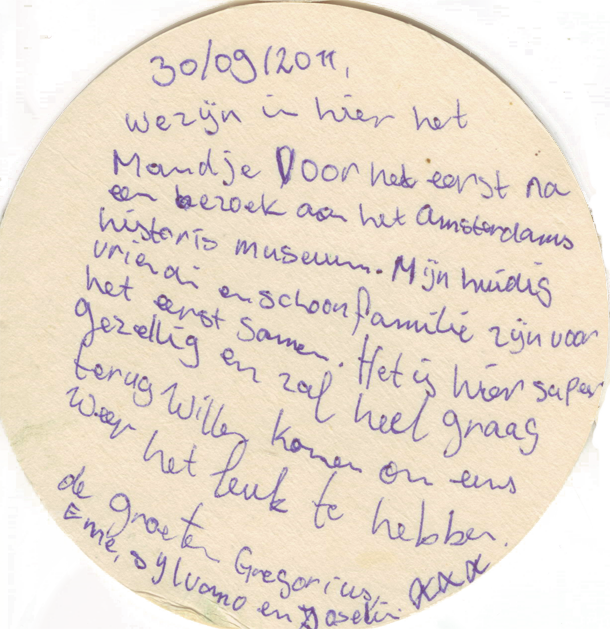 30/09/2011,
we zijn in hier het
Mandje Voor het eerst na
een bezoek aan het amsterdams
historis museum. Mijn huidig
vriendin en schoonfamilie zijn voor
het eerst samen. Het is hier super
gezellig en zal heel graag
terug willen komen om eens
weer het leuk te hebben.
de groeten Gregorius,
Emé, Sylvano en xxx